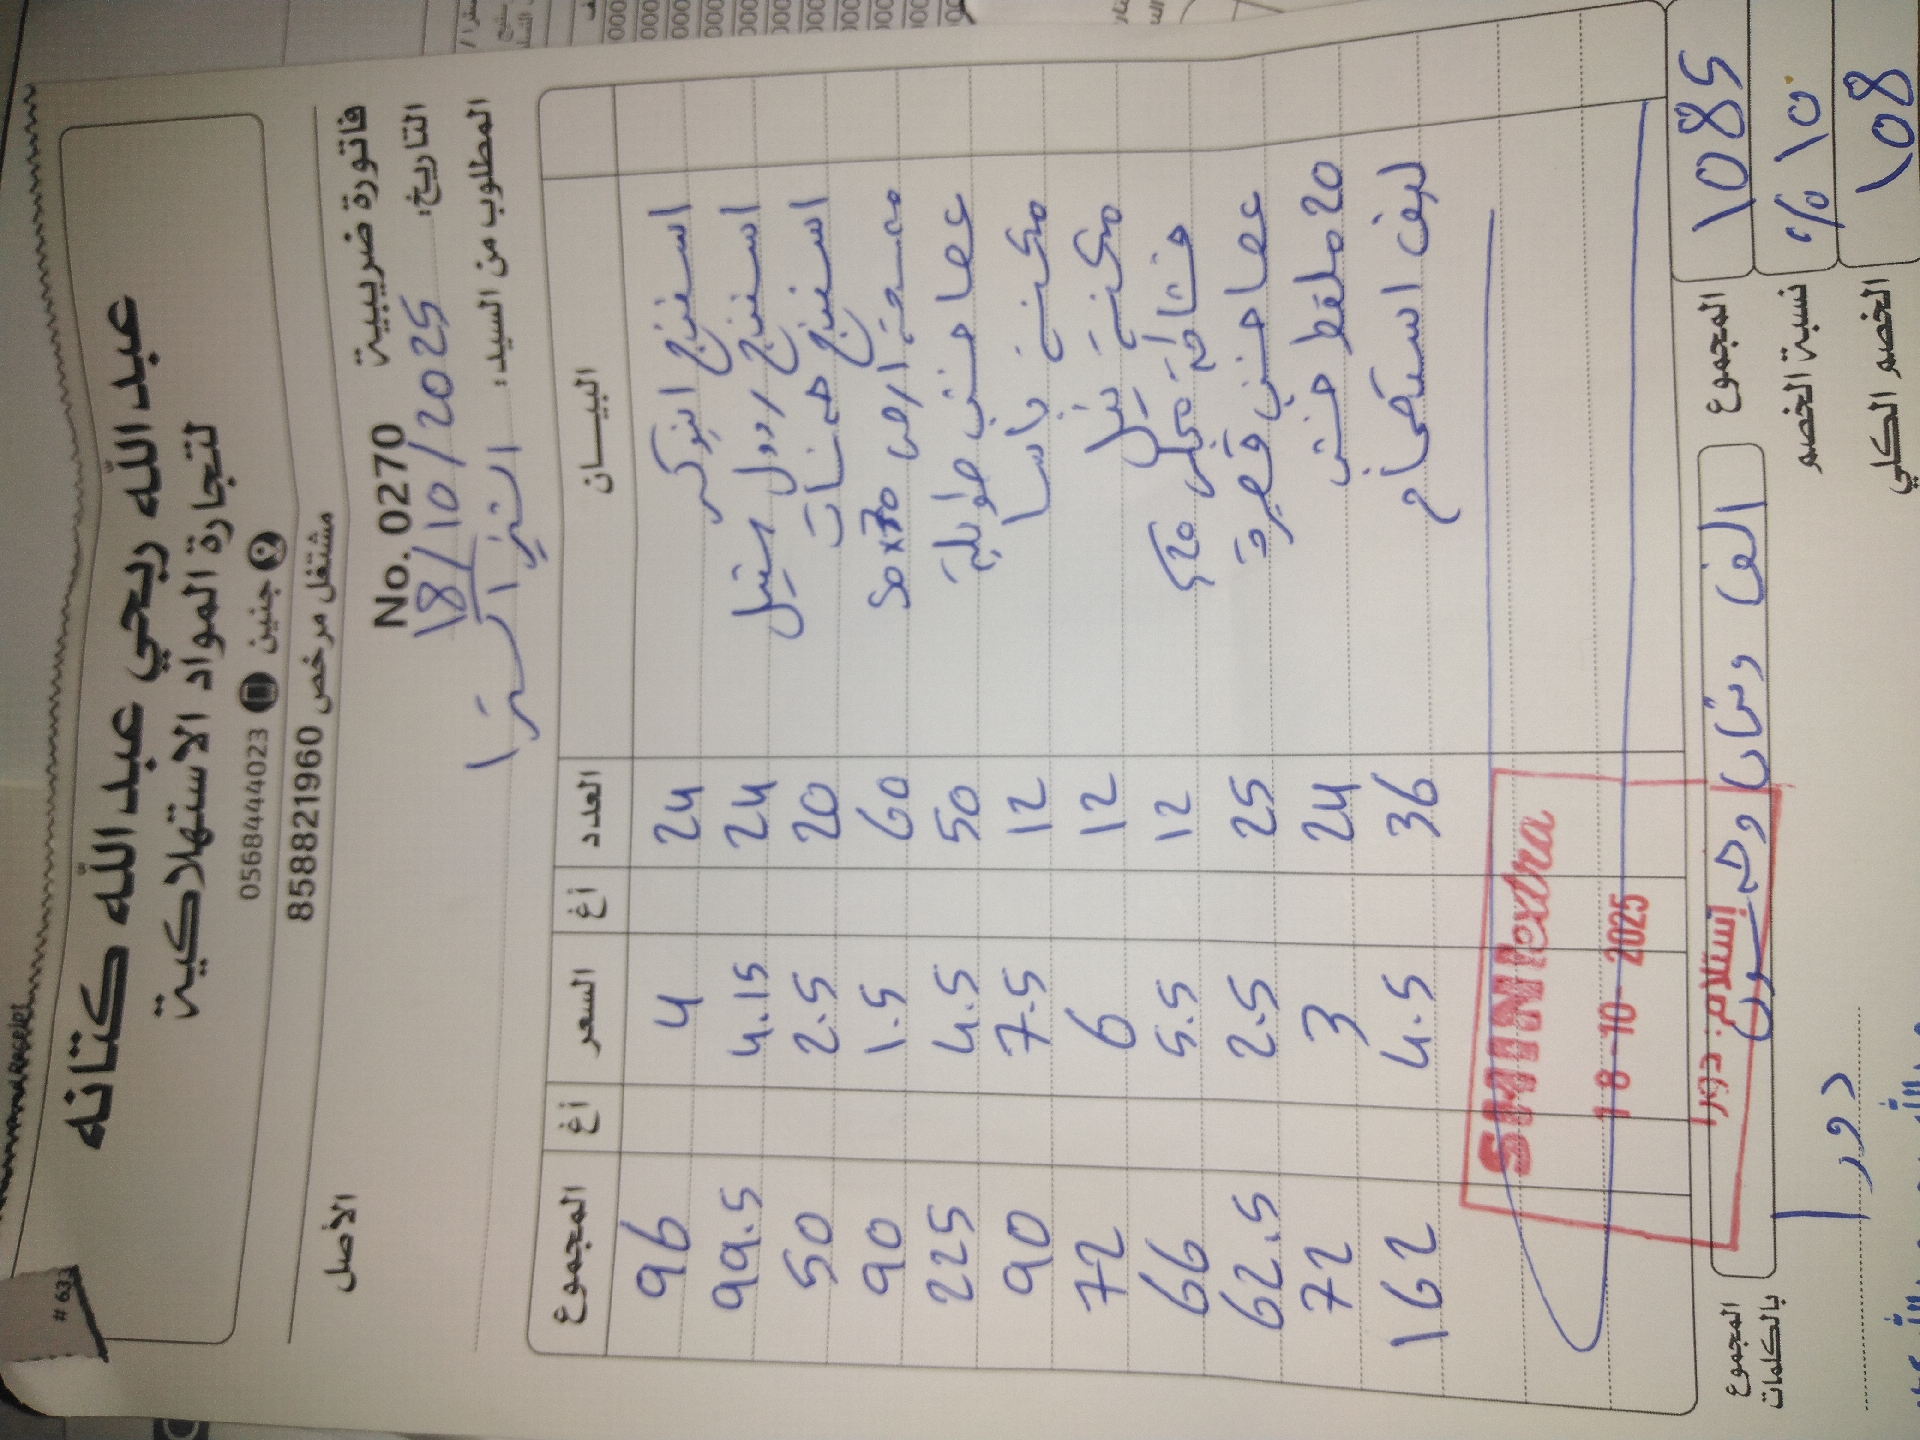 عبد الله ربحي عبد الله كتانه
لتجارة المواد الاستهلاكية
جنين 0568444023
مشتغل مرخص 858821960
فاتورة ضريبية No. 0270 الأصل
التاريخ: 18/10/2025
المطلوب من السيد: الشني اكسترا
البيــان العدد أغ السعر أغ المجموع
اسفنج انوكس 24 4 96
اسفنج رول ستيل 24 4.15 99.5
اسفنج 20 2.5 50
ممسحة ارض 50x70 60 1.5 90
عصا خشب طويلة 50 4.5 225
مكنسة باسا 12 7.5 90
مكنسة 12 6 72
قشاطة 12 5.5 66
عصا خشب قصيرة 25 2.5 62.5
20 ملقط خشب 24 3 72
ليف استحمام 36 4.5 162
SHINI extra
18-10-2025
إستلام: دورا
المجموع 1085
نسبة الخصم 10%
الخصم الكلي 108
المجموع بالكلمات الف وثمان وخمسون
دورا
# 633